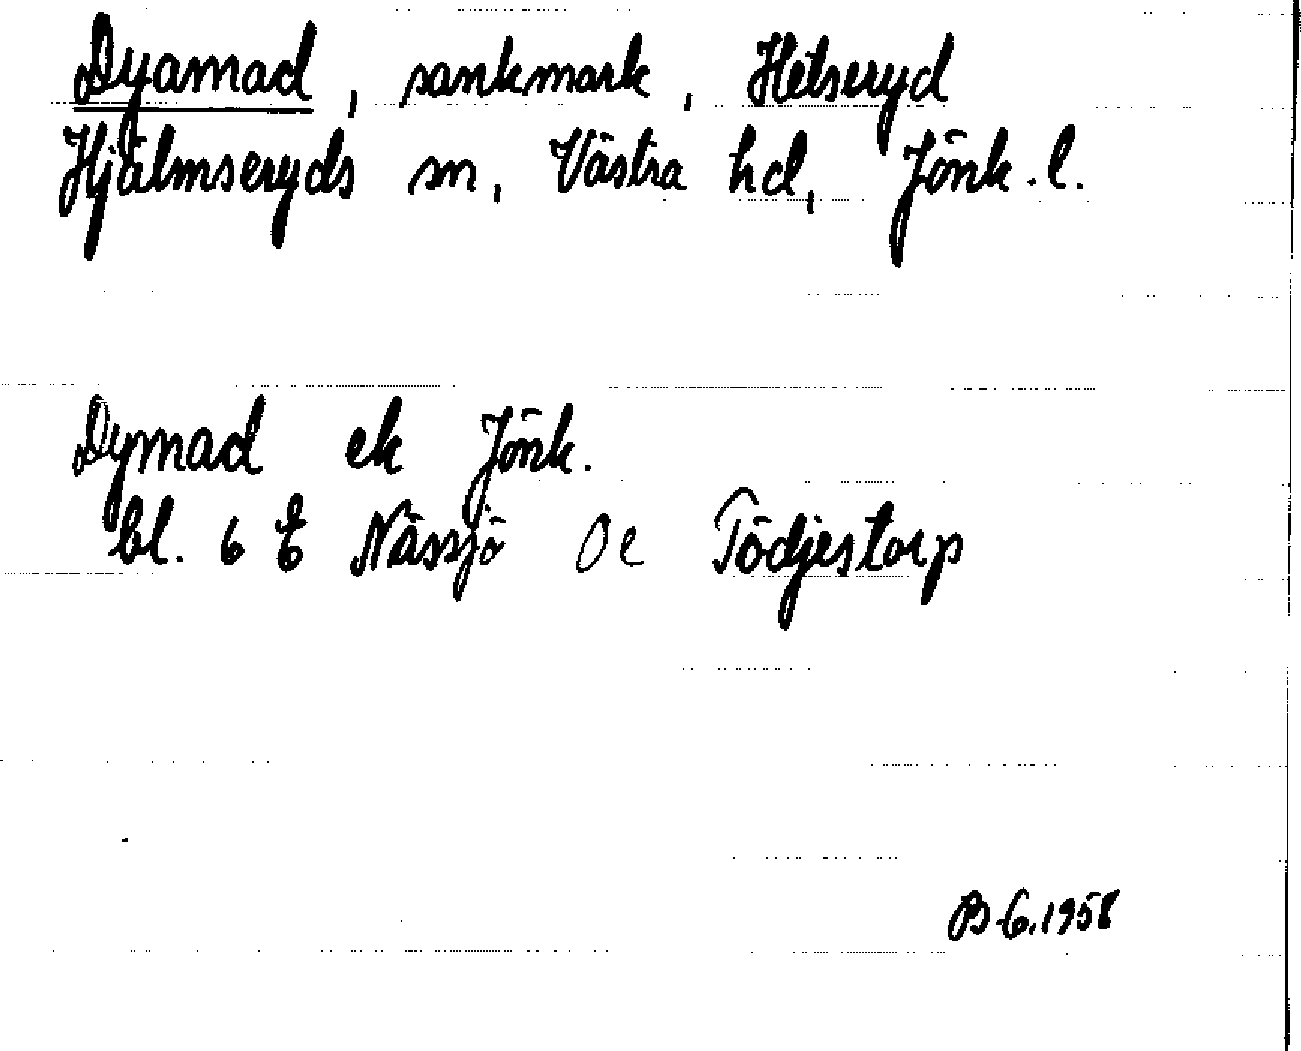 Dyamad, sankmark, Hetseryd
Hjälmseryds sn, Västra hd, Jönk. l.
Dymad ek Jönk.
bl. 6 E Nässjö Oe Tödjestorp
B-G. 1958